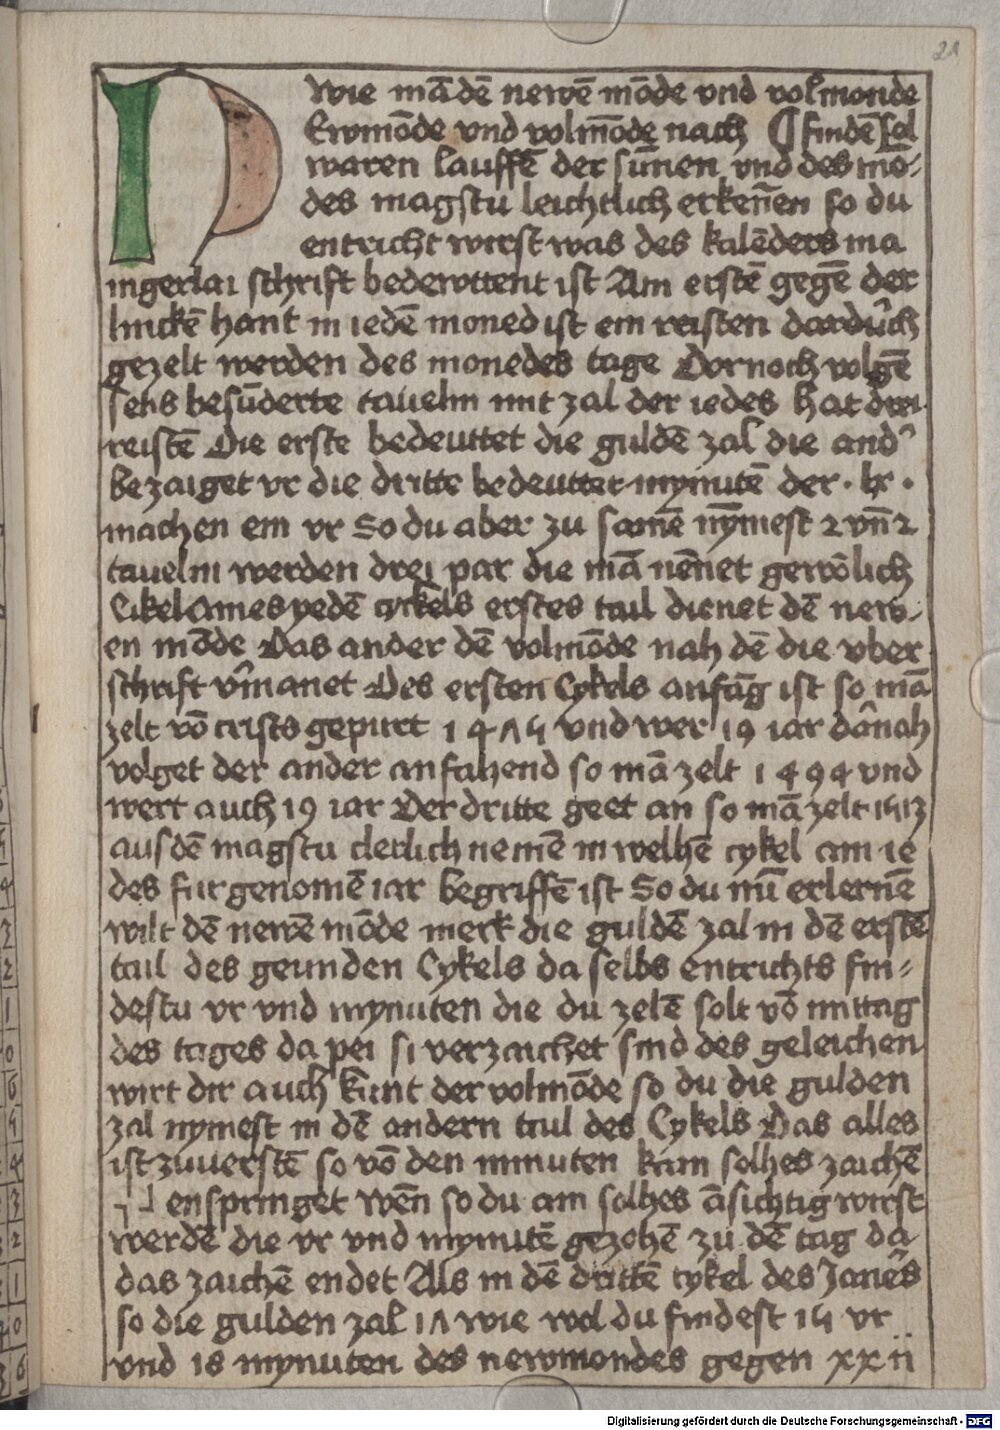 21
Wie mā dē newē mōde vnd volmonde
Newmōde vnd volm̄ode nach ¶ findē sol
waren lauffē der sūnen vnd des mō-
des magstu leichtlich erkēnen so du
entricht wirst was des kalēders ma
ingerlai schrift bedewttent ist Am erstē gegē der
linckē hant in iedē moned ist ein reisten dardûch
gezelt werden des monedes tage Dornoch volgē
sehs besūderte tauelin mit zal der iedes hat drei
reistē Die erste bedeuttet die guldē zal die and
bezaiget vr die dritte bedeuttet mynutē der · lx ·
machen ein vr So du aber zu samē nȳmest 2 vn̄ 2
tauelin werden drei par die mā nēnet gewōlich
Cikel Aines yedē cyrkels erstes tail dienet dē new-
en mōde Das ander dē volmōde nah dē die vber
schrift vm̂anet Des ersten Cykels anfāg ist so mā
zelt vō crists gepurt 1475 vnd wer 19 iar dânah
volget der ander anfahend so mā zelt 1494 vnd
wert auch 19 iar Der dritte geet an so mā zelt 1513
aus dē magstu clerlich nemē in welhē cykel ain ie
des fur genomē iar begriffē ist So du nū erlernē
wilt dē newē mōde merk die guldē zal in dē erstē
tail des geunden Cykels da selbs entrichts fin-
destu vr vnd mynuten die du zelē solt vō mittag
des tages da pei si verzaichet sind des geleichen
wirt dir auch kunt der volmōde so du die gulden
zal nymest in dē andern tail des Cykels Das alles
ist zuuerstē so vō den minuten kain solhes zaichē
enspringet wēn so du ain solhes āsichtig wirst
werdē die vr vnd mynutē gezohē zu dē tag da
das zaichē endet Als in dē drittē cykel des Janês
so die gulden zal 17 wie wol du findest 15 vr
vnd 18 mynuten des newmondes gegen xxii
Digitalisierung gefördert durch die Deutsche Forschungsgemeinschaft - DFG